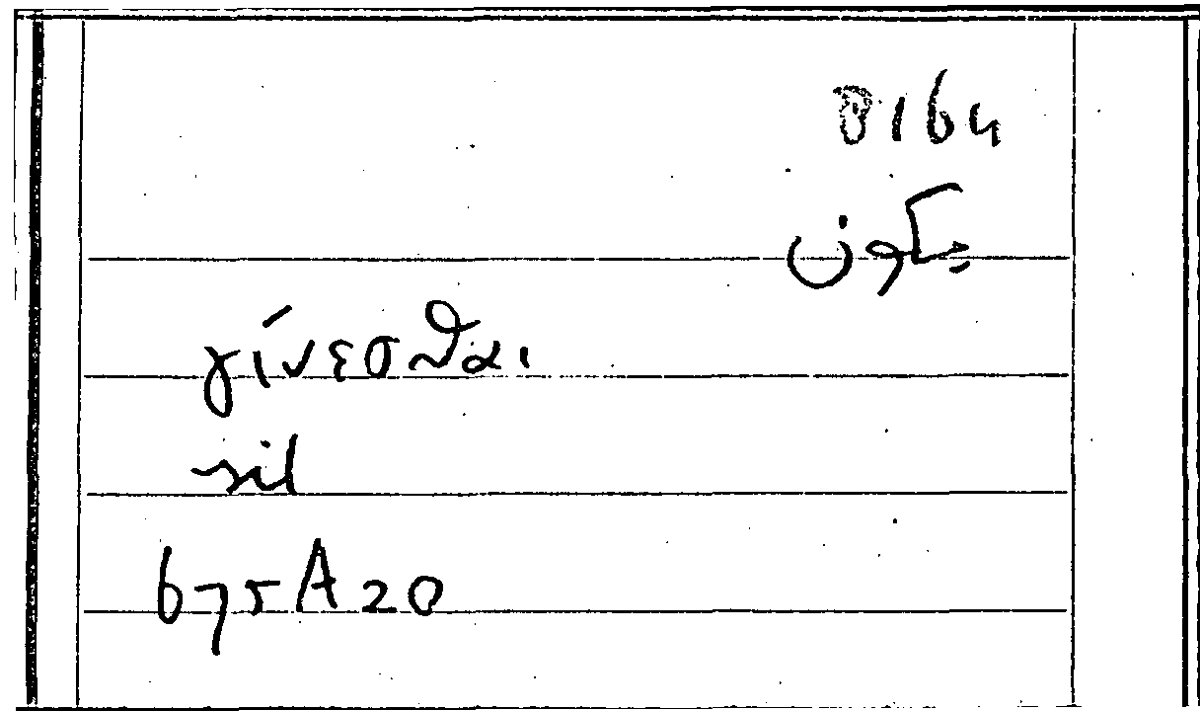 0164
يكون
γίνεσθαι
nil
675A20